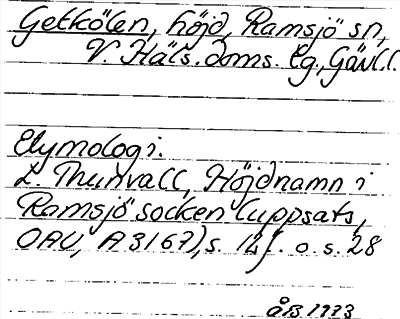 Getkölen, höjd, Ramsjö sn,
V. Häls. doms. lg., Gävl.l.
Etymologi.
L. Thunvall, Höjdnamn i
Ramsjö socken (uppsats,
OAU, A 3167), s. 12 f. o. s. 28
ÅB. 1973